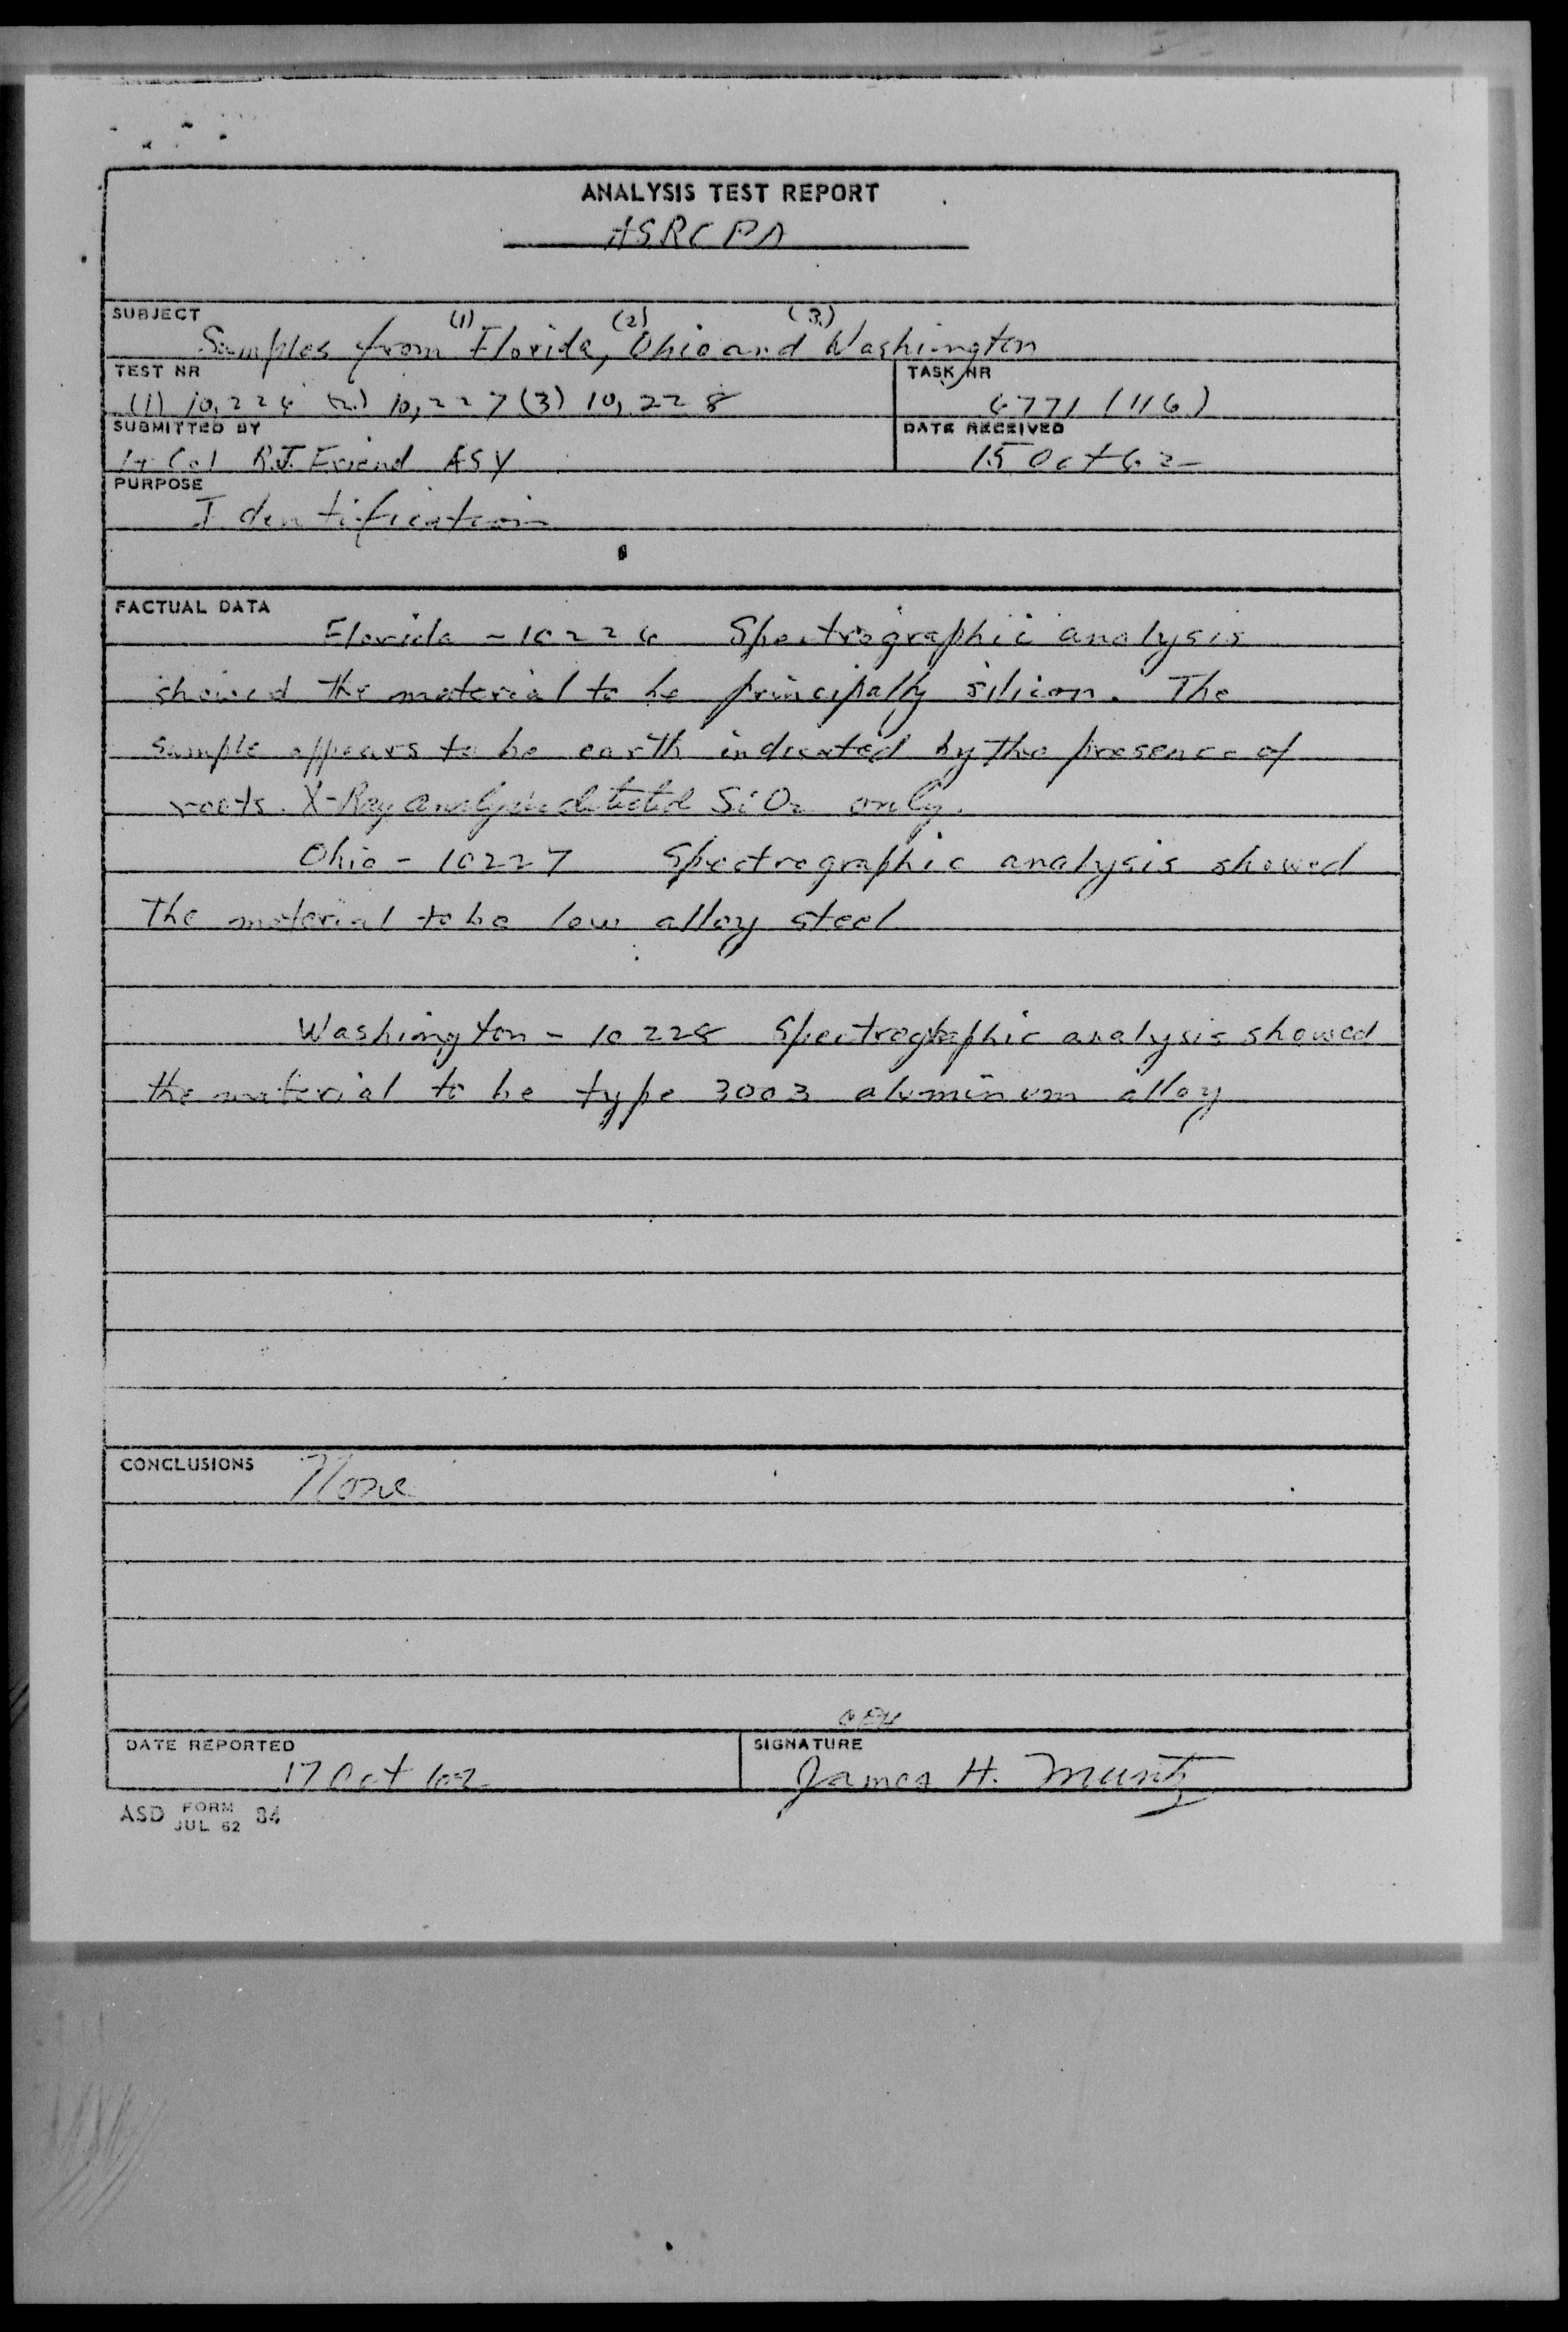 ANALYSIS TEST REPORT
ASRCPA
SUBJECT
(1) (2) (3)
Samples from Florida, Ohio and Washington
TEST NR
TASK NR
(1) 10,226 (2) 10,227 (3) 10,228
6771 (116)
SUBMITTED BY
DATE RECEIVED
Lt Col R.J. Friend ASY
15 Oct 62
PURPOSE
Identification
FACTUAL DATA
Florida - 10226 Spectrographic analysis
showed the material to be principally silicon. The
sample appears to be earth indicated by the presence of
roots. X-Ray analysis detected SiO2 only.
Ohio - 10227 Spectrographic analysis showed
The material to be low alloy steel
Washington - 10228 Spectrographic analysis showed
the material to be type 3003 aluminum alloy
CONCLUSIONS None
DATE REPORTED
SIGNATURE
17 Oct 62
James H. Muntz
ASD FORM JUL 62 84